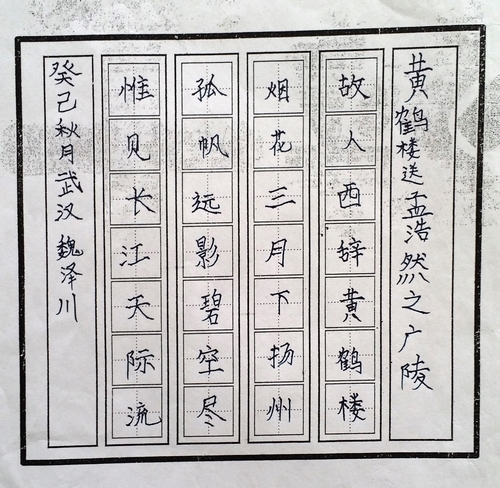 黄鹤楼送孟浩然之广陵
故人西辞黄鹤楼
烟花三月下扬州
孤帆远影碧空尽
惟见长江天际流
癸己秋月武汉魏泽川